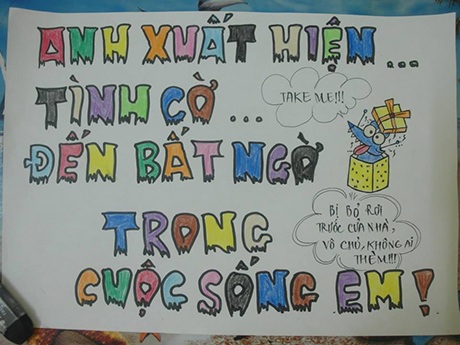 ANH XUẤT HIỆN...
TÌNH CỜ...
TAKE ME!!!
ĐẾN BẤT NGỜ
TRONG
BỊ BỎ RƠI
TRƯỚC CỬA NHÀ,
VÔ CHỦ, KHÔNG AI
THÈM!!!
CUỘC SỐNG EM!